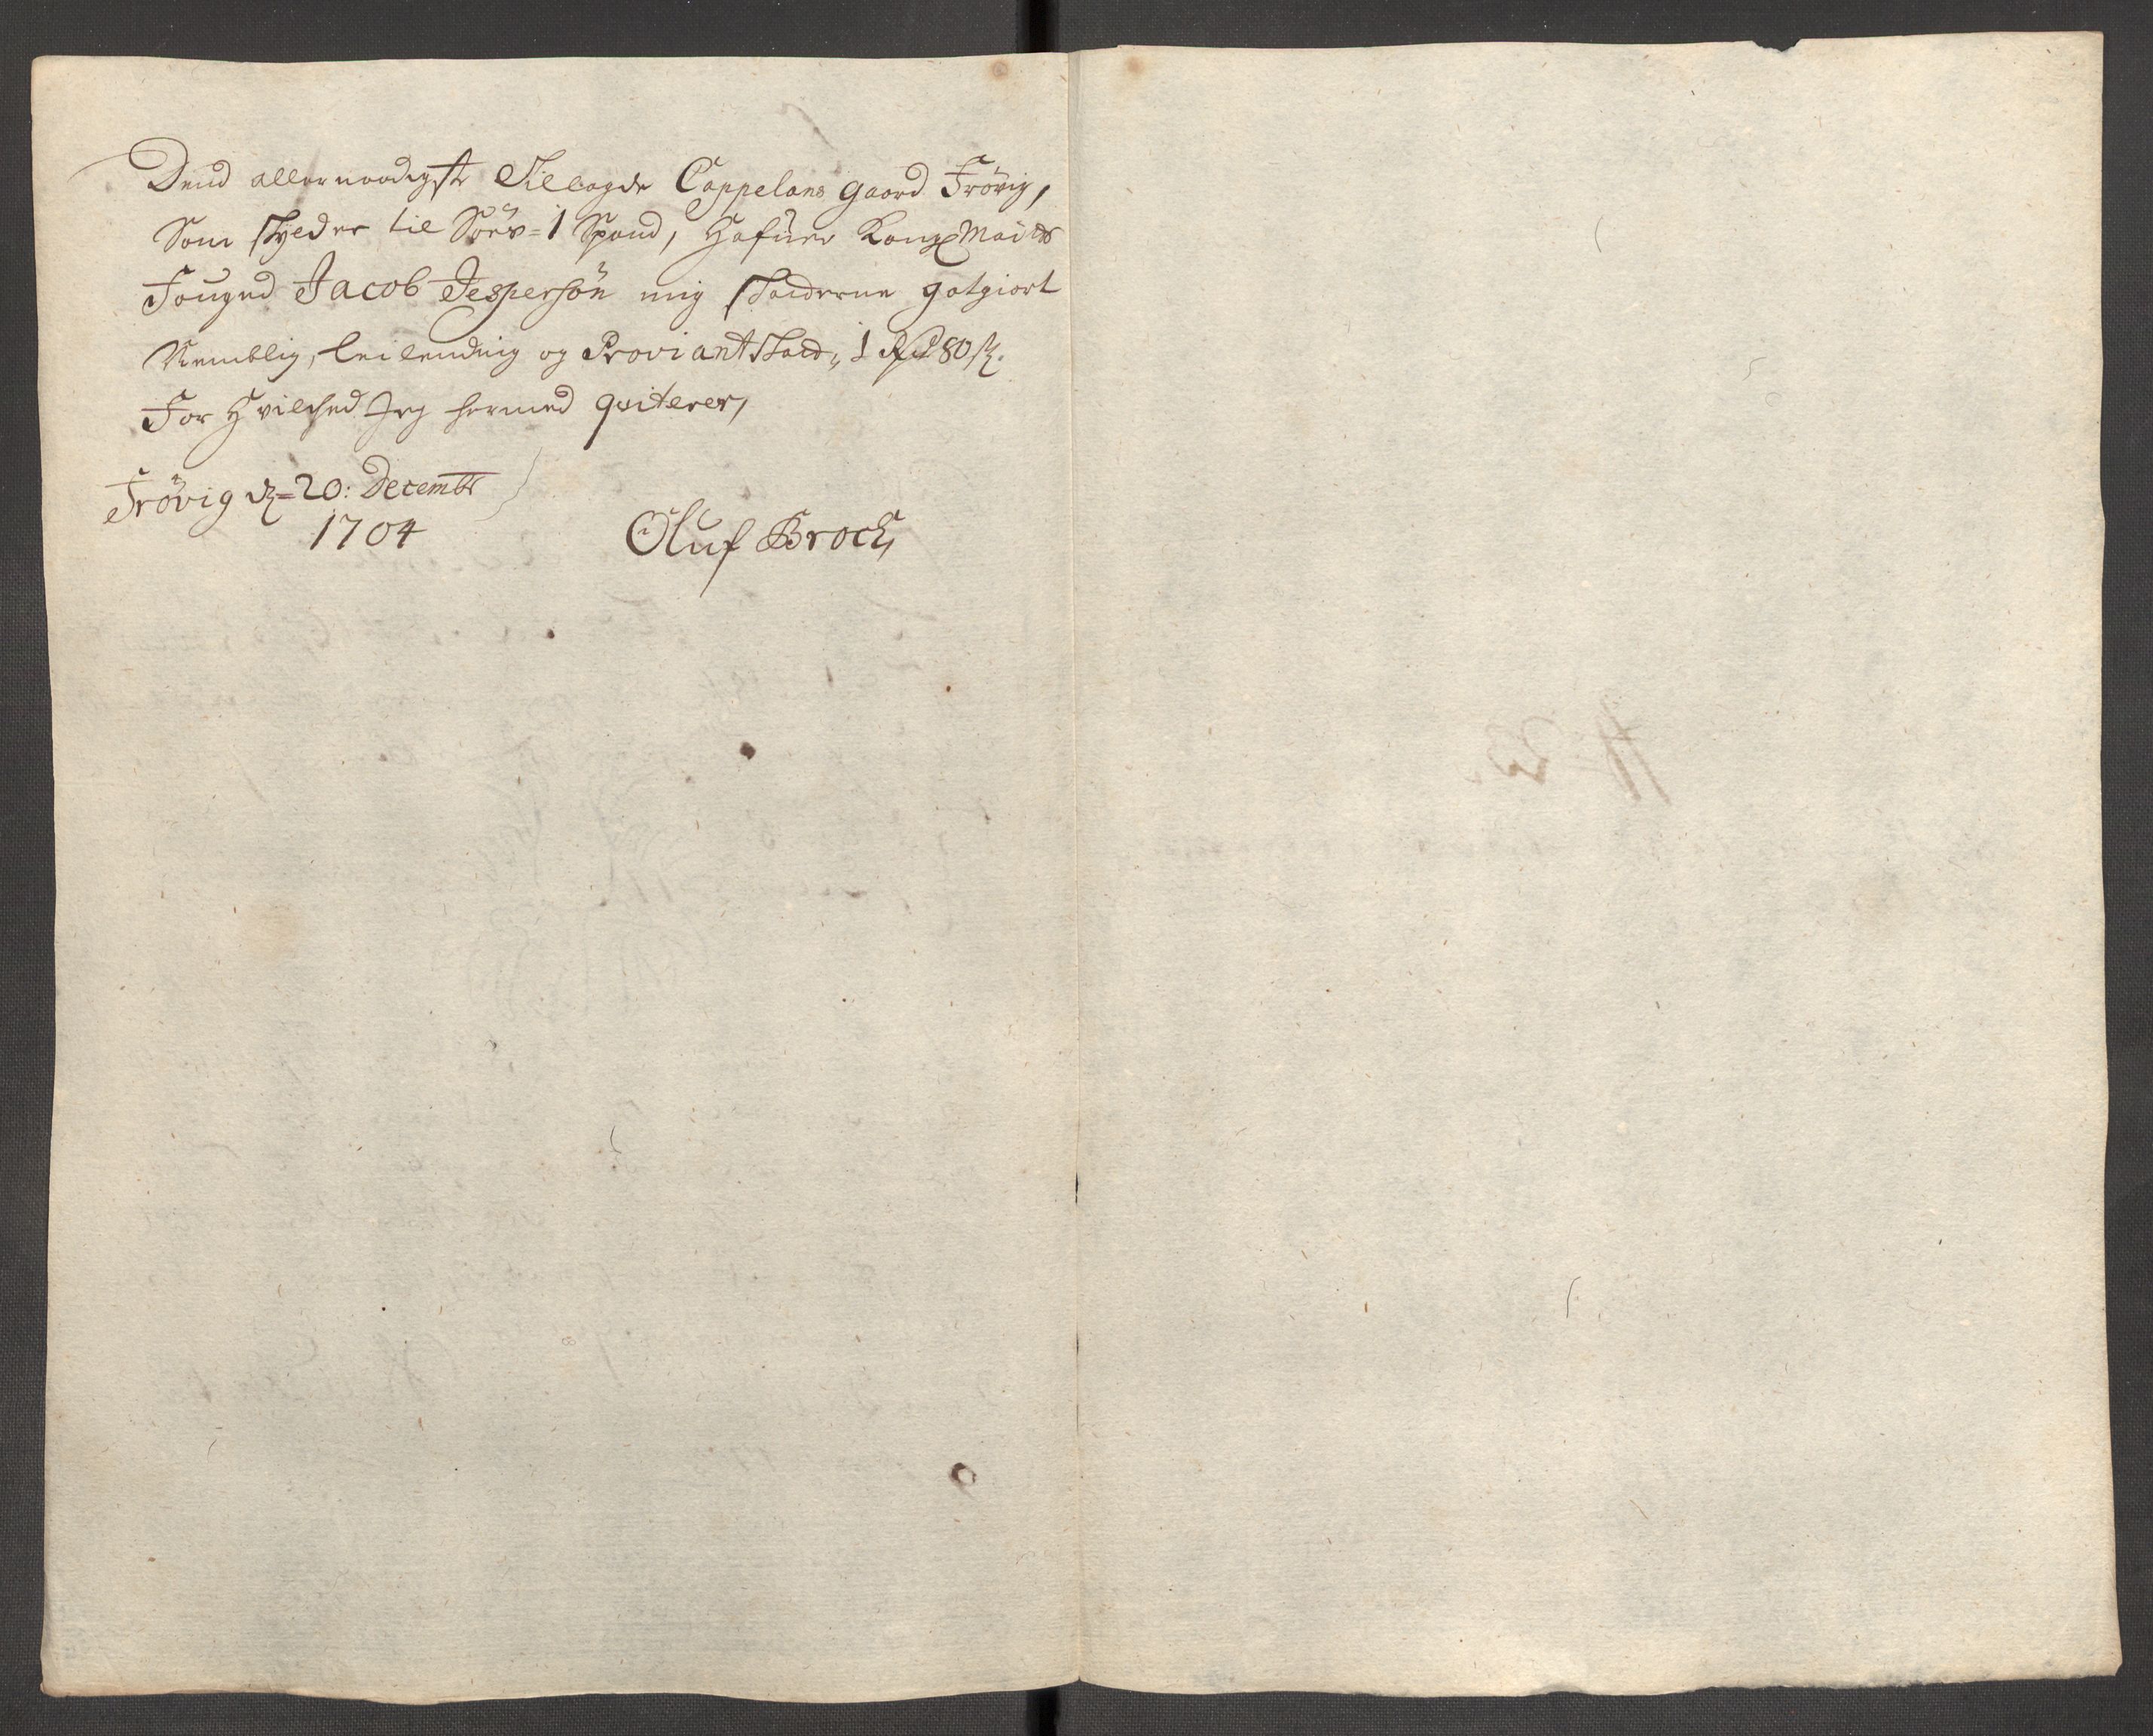 Dend allernaadigste Tillagde Cappelans gaard Frövig,
Som skylder til 1 Spand, Hafuer Kongl Maits
Fouged Jacob Jespersön mig skatterne gotgiort
Nemblig, Leilending og Proviant skatt, 1 Rd 80 s.
For Hvilched Jeg hermed qviterer,
Frövig d. 20: Decembr
1704
Oluf Brock,